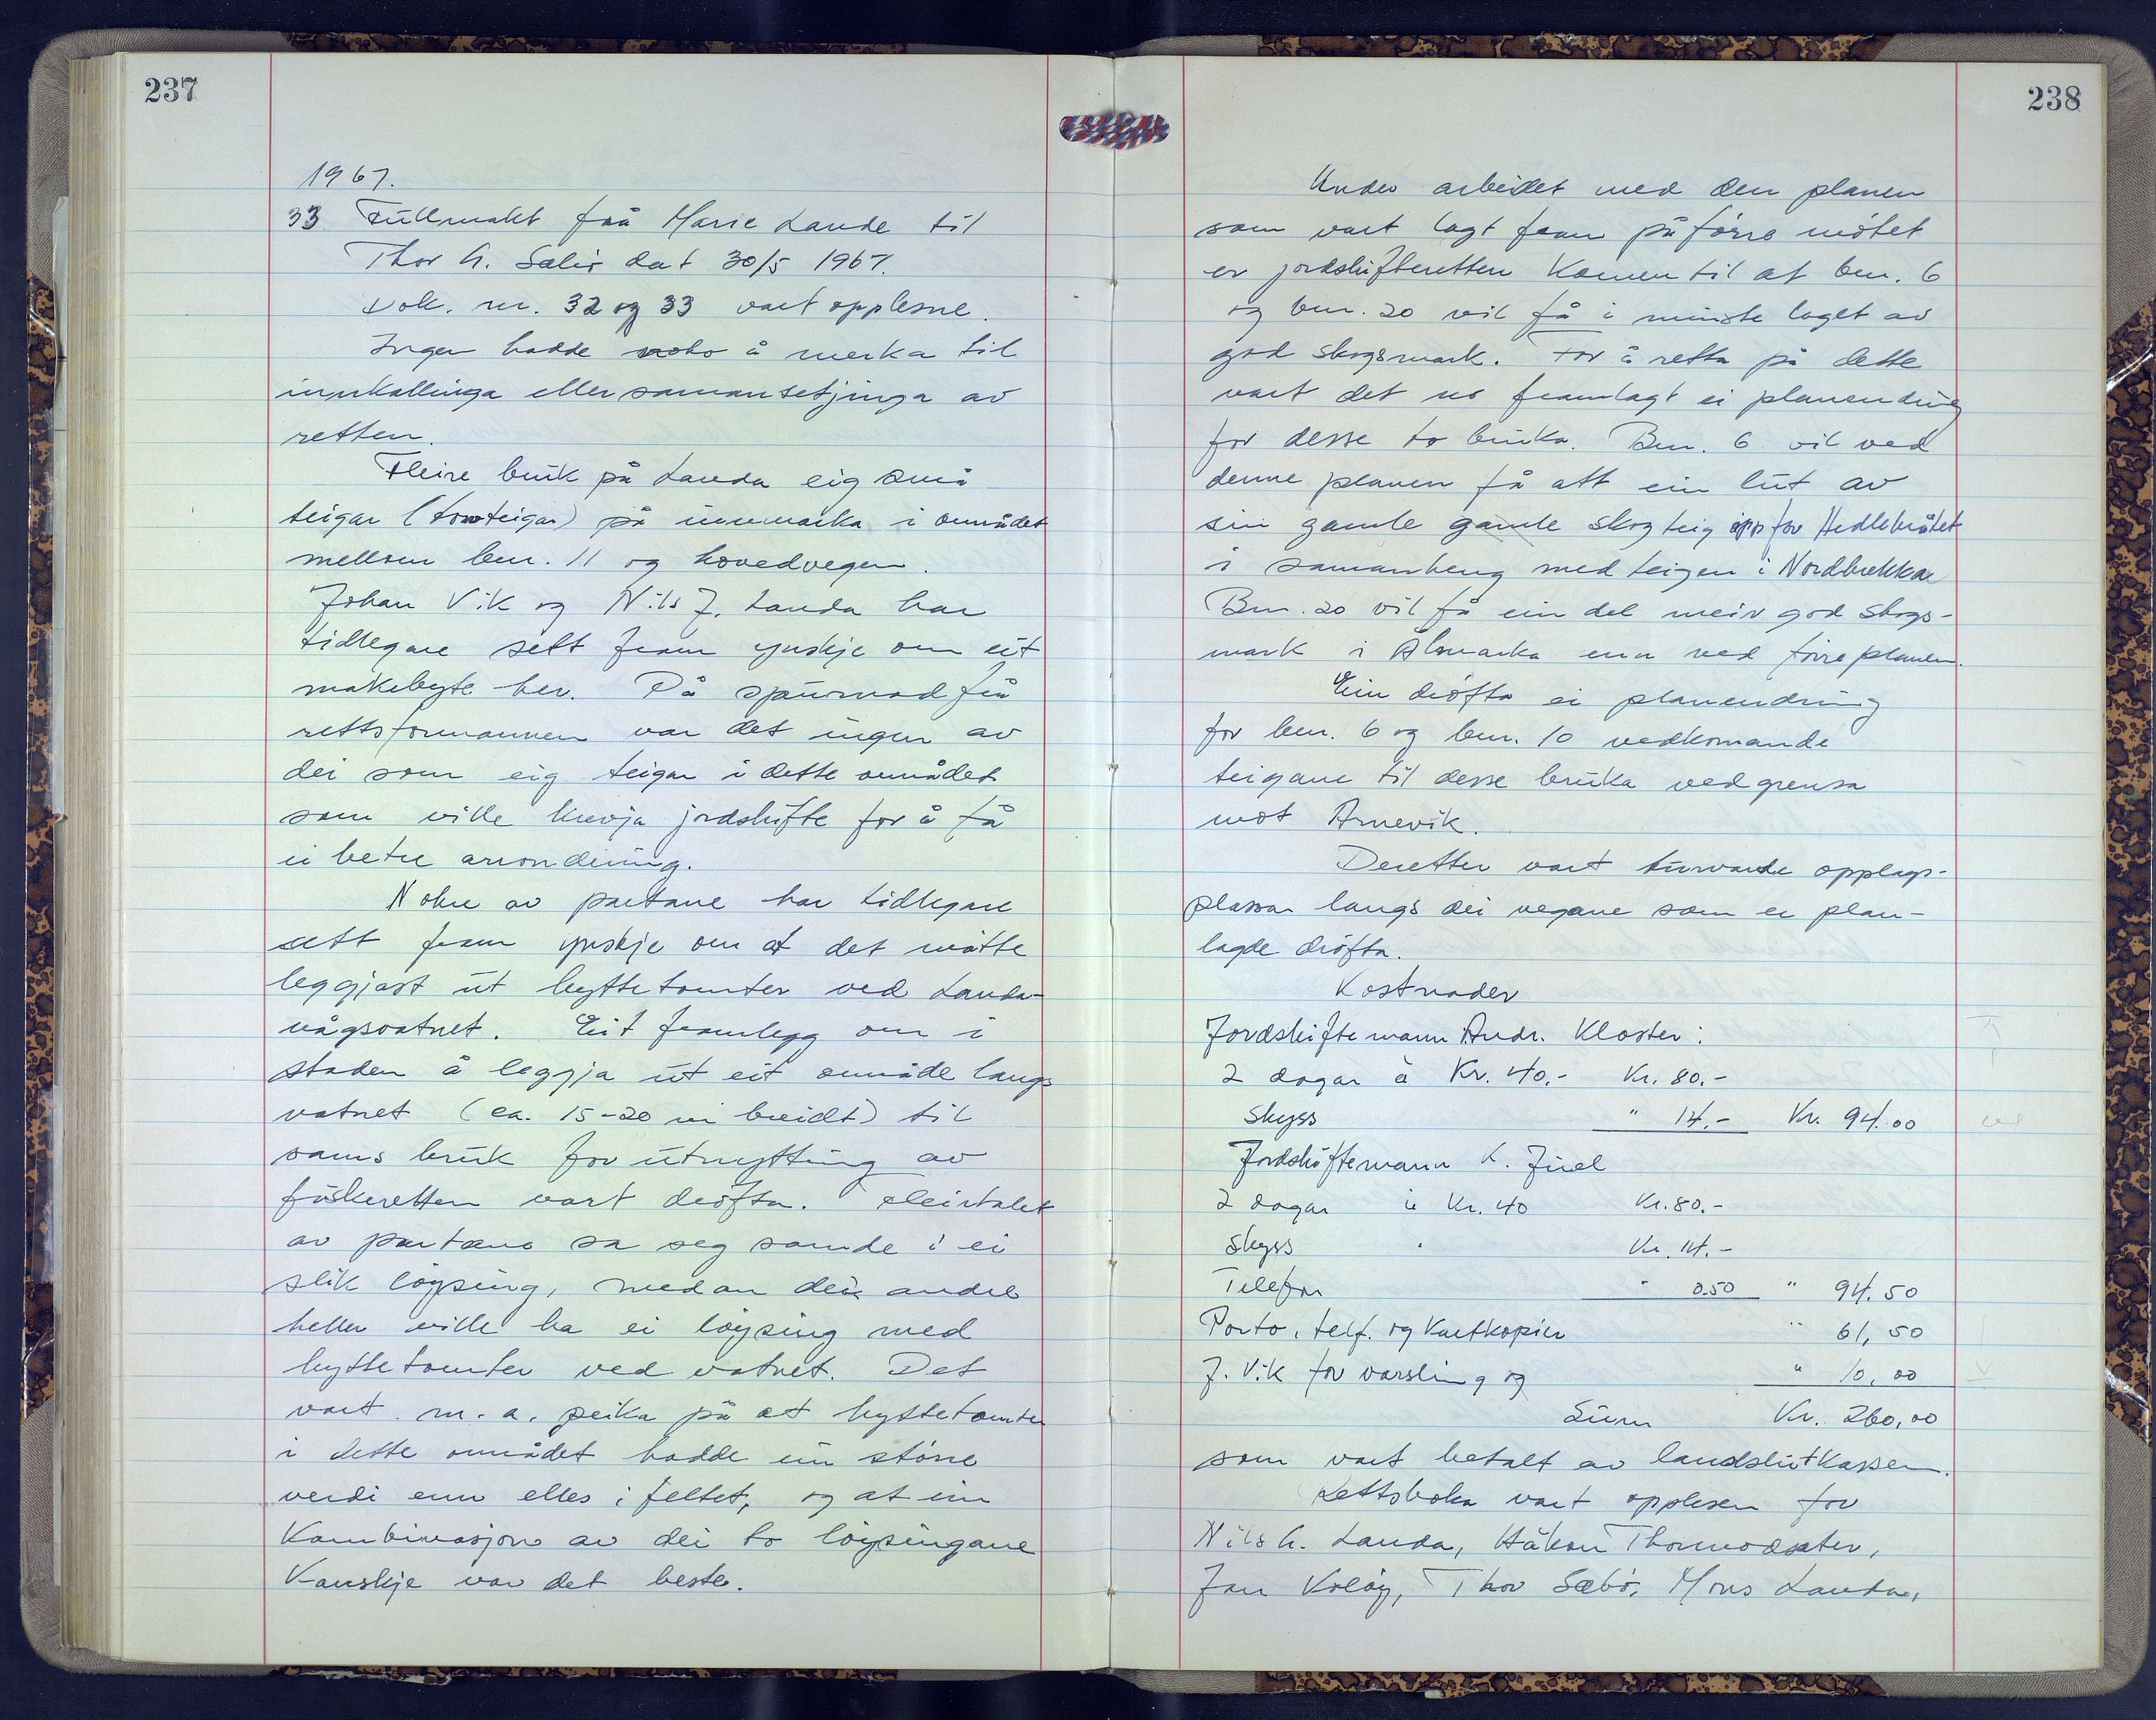 237
1967.
33. Fullmakt frå Marie Landa til
Thor G. dat 30/5 1967.
Dok. nr. 32 og 33 vart opplesne.
Ingen hadde noko å merka til
innkallinga eller samansetjinga av
retten.
Fleire bruk på Landa eig små
teigar (tomteigar) på innmarka i området
mellom bnr. 11 og hovedvegen.
Johan Vik og Nils J. Landa har
tidlegare sett fram ynskje om eit
makebyte her. På spurnad frå
rettsformannen var det ingen av
dei som eig teigar i dette området
som ville krevja jordskifte for å få
ei betre arrondering.
Nokre av partane har tidlegare
sett fram ynskje om at det måtte
leggjast ut hyttetomter ved Landa-
vågsvatnet. Eit framlegg om i
staden å leggja ut eit område langs
vatnet (ca. 15-20 m breidt) til
sams bruk for utnytting av
fiskeretten vart drøfta. Fleirtalet
av partane sa seg samde i ei
slik løysing, medan dei andre
heller ville ha ei løysing med
hyttetomter ved vatnet. Det
vart m.a. peika på at hyttetomter
i dette området hadde ein større
verdi enn elles i feltet, og at ein
kombinasjon av dei to løysingane
kanskje var det beste.
238
Under arbeidet med den planen
som vart lagt fram på førre møtet
er jordskifteretten komen til at bnr. 6
og bnr. 20 vil få i minste laget av
god skogsmark. For å retta på dette
vart det no framlagt ei planendring
for desse to bruka. Bnr. 6 vil ved
denne planen få att ein lut av
sin gamle gamle skogteig opp for Hedlebråtet
i samanheng med teigen i Nordbrekka
Bnr. 20 vil få ein del meir god skogs-
mark i Ålmarka enn ved førre planen.
Ein drøfta ei planendring
for bnr. 6 og bnr. 10 vedkomande
teigane til desse bruka ved grensa
mot Arnevik.
Deretter vart turvande opplags-
plassar langs dei vegane som er plan-
lagde drøfta.
Kostnader
Jordskiftemann Andr. Kloster:
2 dagar à Kr. 40.- Kr. 80.-
Skyss " 14.- Kr. 94.00
Jordskiftemann K. Juel
2 dagar à Kr. 40 Kr. 80.-
Skyss Kr. 14.-
Telefon " 0.50 " 94.50
Porto, telf. og kartkopier " 61,50
J. Vik for varsling og " 10,00
Sum Kr. 260,00
som vart betalt av landslutkassen.
Rettsboka vart opplesen for
Nils G. Landa, Håkon Thormodsæter,
Jan Koløy, Thor Sæbø, Mons Landa,